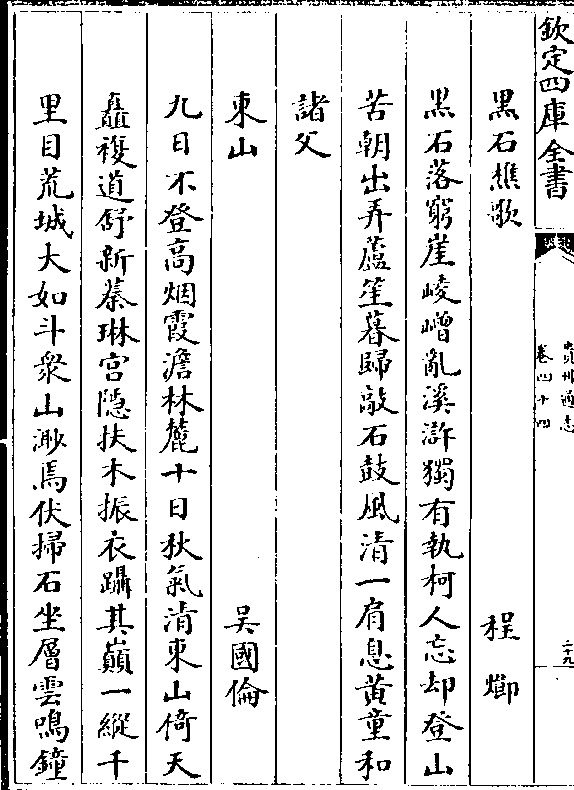 欽定四庫全書
貴州通志
卷四十四
二十九
黑石樵歌
程爀
黑石落窮崖崚嶒亂溪滸獨有執柯人忘却登山
苦朝出弄蘆笙暮歸敲石鼓風清一肩息黃童和
諸父
東山
吳國倫
九日不登高烟霞澹林麓十日秋氣清東山倚天
矗複道舒新蓁琳宮隱扶木振衣躡其巔一縱千
里目荒城大如斗衆山渺焉伏掃石坐層雲鳴鐘